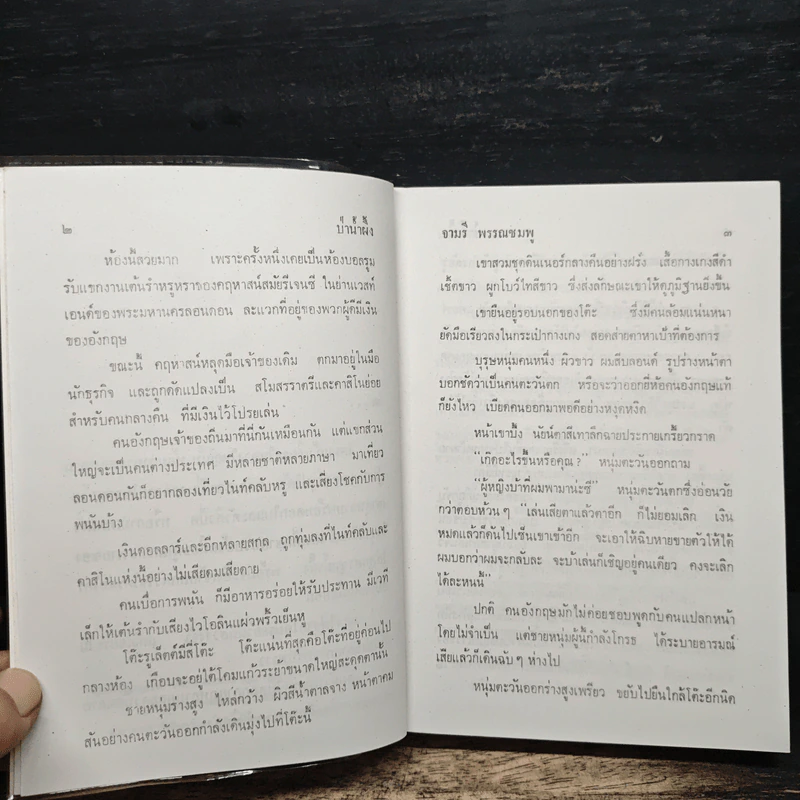 ๒ ป่าน้ำผึ้ง
ห้องนี้สวยมาก เพราะครั้งหนึ่งเคยเป็นห้องบอลรูม
รับแขกงานเต้นรำหรูหราของคฤหาสน์สมัยรีเจนซี ในย่านเวสท์
เอนด์ของพระมหานครลอนดอน ละแวกที่อยู่ของพวกผู้ดีมีเงิน
ของอังกฤษ
ขณะนี้ คฤหาสน์หลุดมือเจ้าของเดิม ตกมาอยู่ในมือ
นักธุรกิจ และถูกดัดแปลงเป็น สโมสรราตรีและคาสิโนย่อย
สำหรับคนกลางคืน ที่มีเงินไว้โปรยเล่น
คนอังกฤษเจ้าของถิ่นมาที่นี่กันเหมือนกัน แต่แขกส่วน
ใหญ่จะเป็นคนต่างประเทศ มีหลายชาติหลายภาษา มาเที่ยว
ลอนดอนกันก็อยากลองเที่ยวไนท์คลับหรู และเสี่ยงโชคกับการ
พนันบ้าง
เงินดอลลาร์และอีกหลายสกุล ถูกทุ่มลงที่ไนท์คลับและ
คาสิโนแห่งนี้อย่างไม่เสียดมเสียดาย
คนเบื่อการพนัน ก็มีอาหารอร่อยให้รับประทาน มีเวที
เล็กให้เต้นรำกับเสียงไวโอลินแผ่วพริ้วเย็นหู
โต๊ะรูเล็ตต์มีสี่โต๊ะ โต๊ะแน่นที่สุดคือโต๊ะที่อยู่ค่อนไป
กลางห้อง เกือบจะอยู่ใต้โคมแก้วระย้าขนาดใหญ่สะดุดตานั้น
ชายหนุ่มร่างสูง ไหล่กว้าง ผิวสีน้ำตาลจาง หน้าตาคม
สันอย่างคนตะวันออกกำลังเดินมุ่งไปที่โต๊ะนี้
จามรี พรรณชมพู ๓
เขาสวมชุดดินเนอร์กลางคืนอย่างฝรั่ง เสื้อกางเกงสีดำ
เชิ้ตขาว ผูกโบว์ไทสีขาว ซึ่งส่งลักษณะเขาให้ดูภูมิฐานยิ่งขึ้น
เขายืนอยู่รอบนอกของโต๊ะ ซึ่งมีคนล้อมแน่นหนา
ยัดมือเรียวลงในกระเป๋ากางเกง สอดส่ายตาหาเป้าที่ต้องการ
บุรุษหนุ่มคนหนึ่ง ผิวขาว ผมสีบลอนด์ รูปร่างหน้าตา
บอกชัดว่าเป็นคนตะวันตก หรือจะว่าออกยี่ห้อคนอังกฤษแท้
ก็ยังไหว เบียดคนออกมาพอดีอย่างหงุดหงิด
หน้าเขาบึ้ง นัยน์ตาสีเทาลึกฉายประกายเกรี้ยวกราด
“เกิดอะไรขึ้นหรือคุณ?” หนุ่มตะวันออกถาม
“ผู้หญิงบ้าที่ผมพามาน่ะซี” หนุ่มตะวันตกซึ่งอ่อนวัย
กว่าตอบห้วนๆ “เล่นเสียตาแล้วตาอีก ก็ไม่ยอมเลิก เงิน
หมดแล้วก็ดันไปเซ็นเขาเข้าอีก จะเอาให้ฉิบหายขายตัวให้ได้
ผมบอกว่าผมจะกลับละ จะบ้าเล่นก็เชิญอยู่คนเดียว คงจะเลิก
ได้ละหนนี้”
ปกติ คนอังกฤษมักไม่ค่อยชอบพูดกับคนแปลกหน้า
โดยไม่จำเป็น แต่ชายหนุ่มผู้นี้กำลังโกรธ ได้ระบายอารมณ์
เสียแล้วก็เดินฉับๆ ห่างไป
หนุ่มตะวันออกร่างสูงเพรียว ขยับไปยืนใกล้โต๊ะอีกนิด